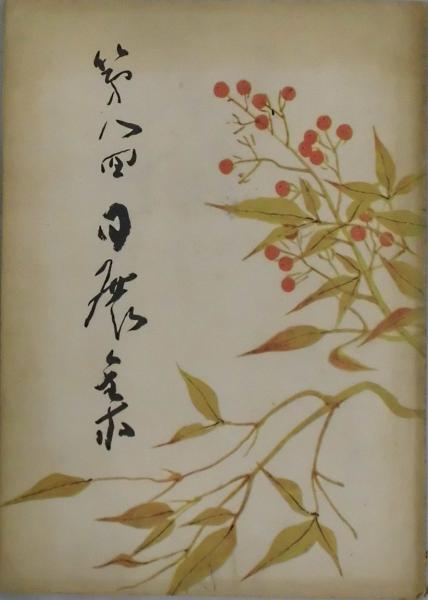 第八回日展集